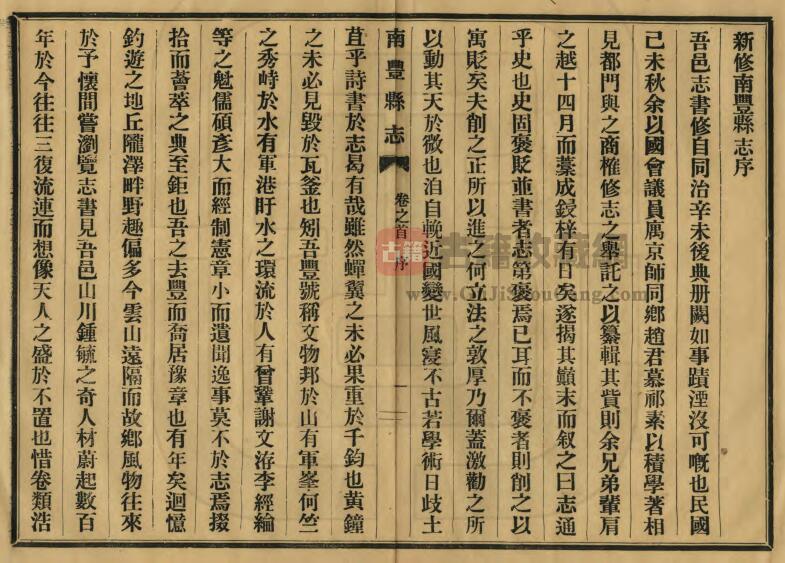 新修南豐縣志序
吾邑志書修自同治辛未後典册闕如事蹟湮沒可嘅也民國
己未秋余以國會議員寓京師同鄉趙君慕祁素以積學著相
見都門與之商榷修志之舉託之以纂輯其貲則余兄弟輩肩
之越十四月而藁成鋟梓有日矣遂揭其巔末而叙之曰志通
乎史也史固褒貶並書者志第褒焉已耳而不褒者則削之以
寓貶矣夫削之正所以進之何立法之敦厚乃爾蓋激勸之所
以動其天於微也洎自輓近國變世風寖不古若學術日歧土
南豐縣志
卷之首 序
一
苴乎詩書於志曷有哉雖然蟬翼之未必果重於千鈞也黃鐘
之未必見毀於瓦釜也矧吾豐號稱文物邦於山有軍峯何竺
之秀峙於水有軍港盱水之環流於人有曾鞏謝文洊李經綸
等之魁儒碩彥大而經制憲章小而遺聞逸事莫不於志焉掇
拾而薈萃之典至鉅也吾之去豐而喬居豫章也有年矣迴憶
釣遊之地丘隴澤畔野趣偏多今雲山遠隔而故鄉風物往來
於予懷間嘗瀏覽志書見吾邑山川鍾毓之奇人材蔚起數百
年於今往往三復流連而想像天人之盛於不置也惜卷類浩
古籍收藏網